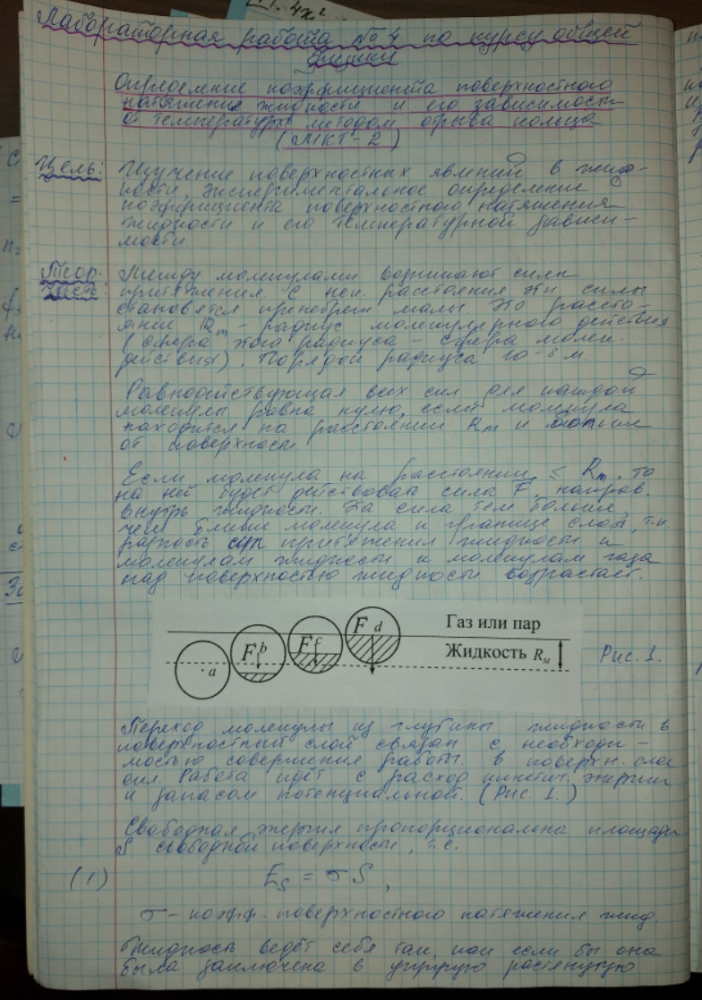 Лабораторная работа № 4 по курсу общей
физики
Определение коэффициента поверхностного
натяжения жидкости и его зависимости
от температуры методом отрыва кольца
(МКТ-2)
Цель: Изучение поверхностных явлений в жид-
кости, экспериментальное определение
коэффициента поверхностного натяжения
жидкости и его температурной зависи-
мости.
Теор. Между молекулами возникают силы
часть: притяжения. С нек. расстояния эти силы
становятся пренебреж. малы. Это рассто-
яние Rm - радиус молекулярного действия
(сфера этого радиуса - сфера молек.
действия). Порядок радиуса 10⁻⁸ м.
Равнодействующая всех сил для каждой
молекулы равна нулю, если молекула
находится на расстоянии Rm и больше
от поверхности.
Если молекула на расстоянии ≤ Rm, то
на неё будет действовать сила F, направ.
внутрь жидкости. Эта сила тем больше,
чем ближе молекула к границе слоя, т.к.
разность сил притяжения жидкости к
молекулам жидкости и молекулам газа
над поверхностью жидкости возрастает.
F d
F c
F b
a
Газ или пар
Жидкость Rм
Рис. 1.
Переход молекулы из глубины жидкости в
поверхностный слой связан с необходи-
мостью совершения работы. в поверхн. слое
сил. Работа идёт с расход кинетич. энергии
и запасом потенциальной. (Рис. 1.)
Свободная энергия пропорциональна площади
S свободной поверхности, т.е.
(1) Es = σ S,
σ - коэфф. поверхностного натяжения жид.
Жидкость ведёт себя так, как если бы она
была заключена в упругую растянутую